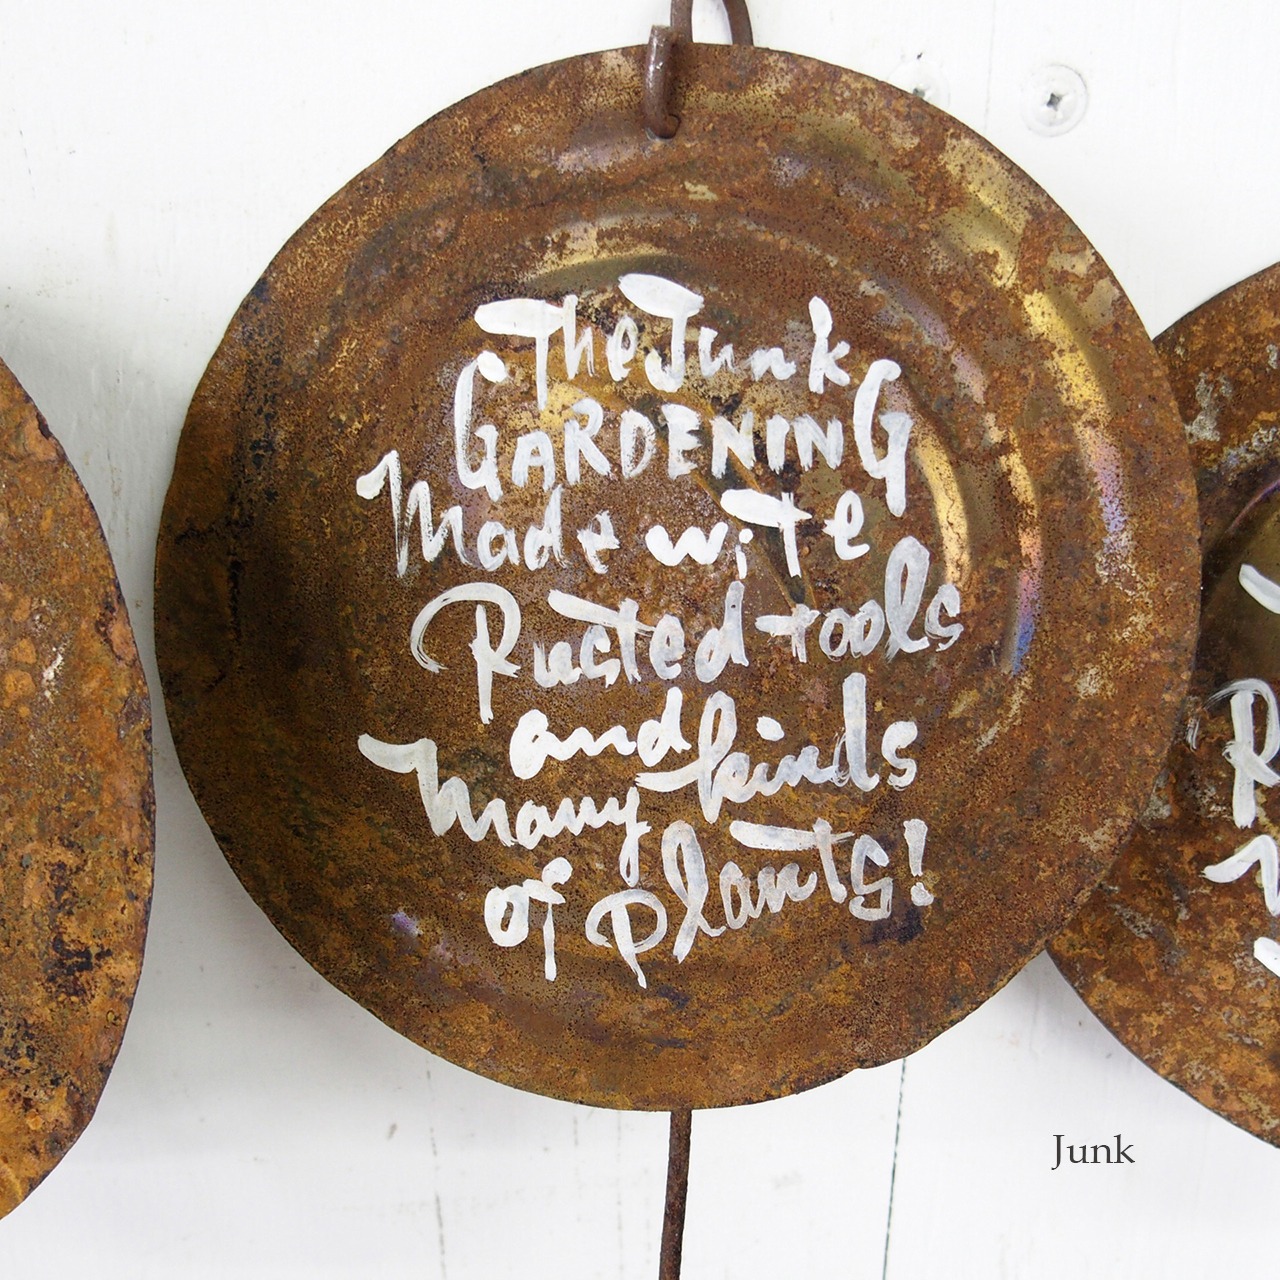 The Junk
GARDENING
Made wite
Rusted tools
and kinds
Many
of plants!
Junk